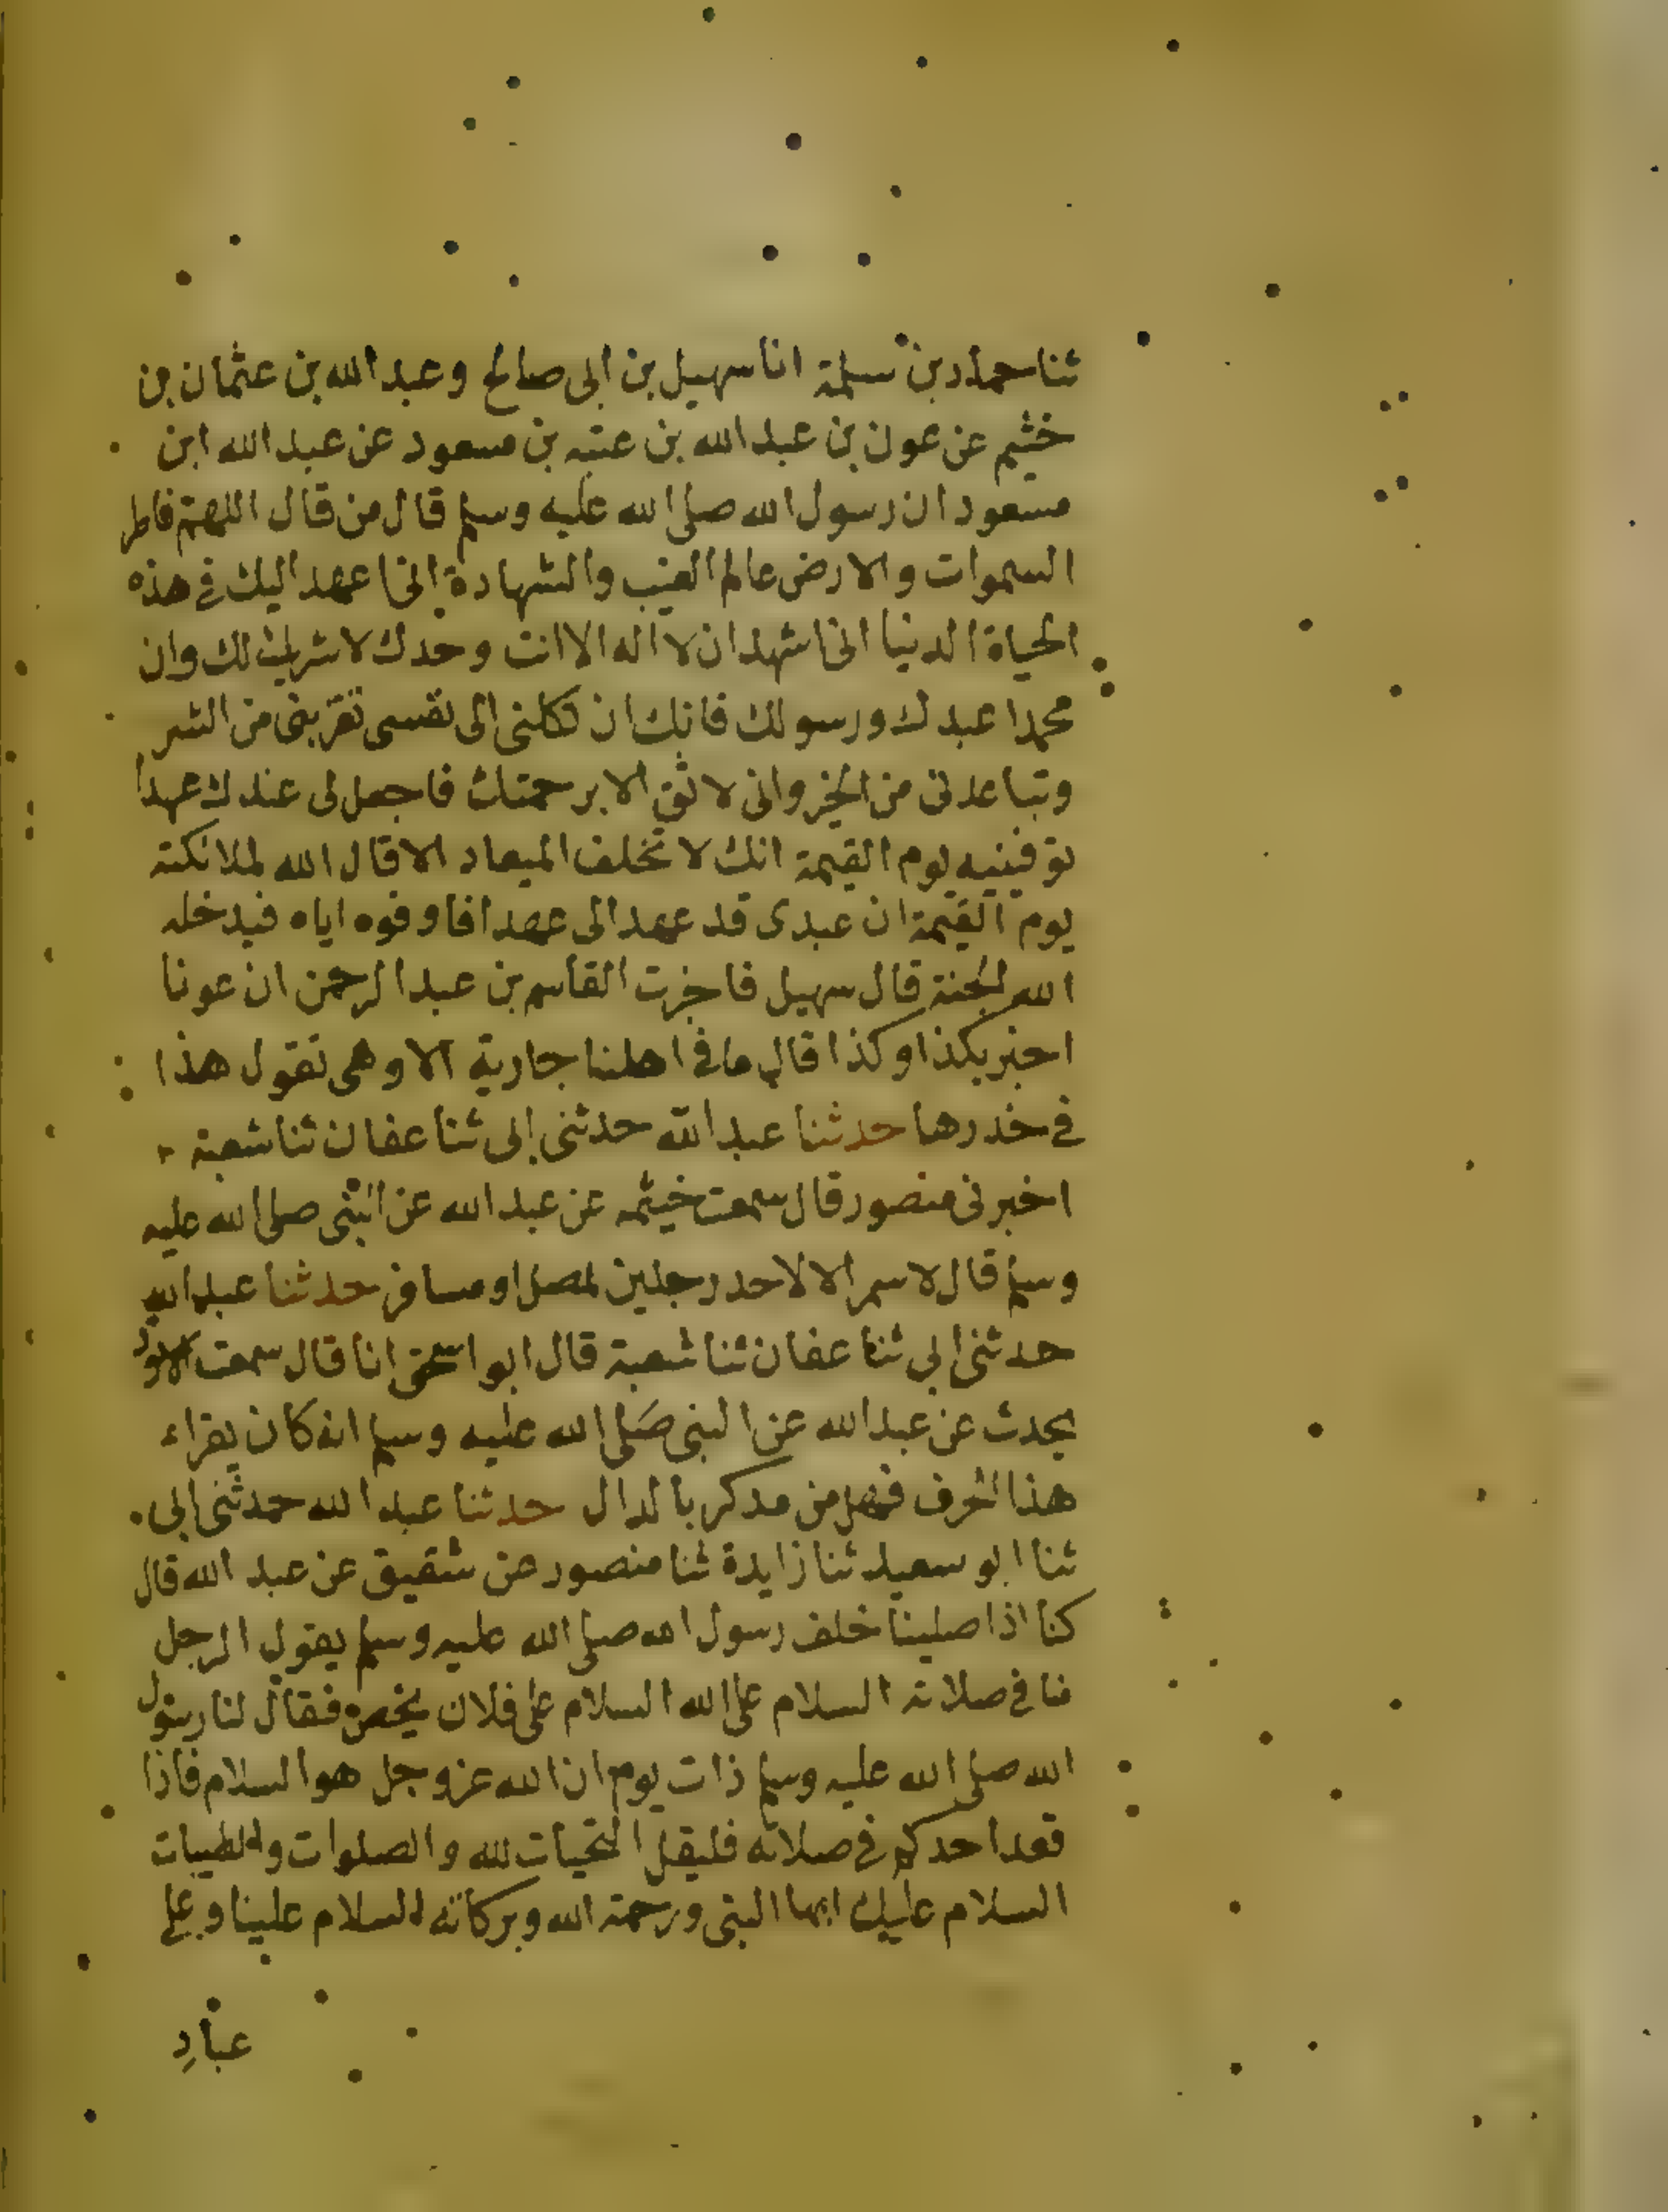 ثنا حماد بن سلمة انا سهيل بن ابى صالح وعبد الله بن عثمان بن
خثيم عن عون بن عبد الله بن عتبه بن مسعود عن عبد الله ابن
مسعود ان رسول الله صلى الله عليه وسلم قال من قال اللهم فاطر
السموات والارض عالم الغيب والشهادة انى اعهد اليك فى هذه
الحياة الدنيا انى اشهد ان لا اله الا انت وحدك لا شريك لك وان
محمدا عبدك ورسولك فانك ان تكلنى الى نفسى تقربنى من الشر
وتباعدنى من الخير وانى لا اثق الا برحمتك فاجعل لى عندك عهدا
توفينيه يوم القيمة انك لا تخلف الميعاد الا قال الله لملائكته
يوم القيمة ان عبدى قد عهد الى عهدا فاوفوه اياه فيدخله
الله الجنة قال سهيل فاخبرت القاسم بن عبد الرحمن ان عونا
اخبر بكذا وكذا قال ما فى اهلنا جارية الا وهى تقول هذا
فى خدرها حدثنا عبد الله حدثنى ابى ثنا عفان ثنا شعبة
اخبرنى منصور قال سمعت خيثمه عن عبد الله عن النبى صلى الله عليه
وسلم قال لا سمر الا لاحد رجلين لمصل او مسافر حدثنا عبد الله
حدثنى ابى ثنا عفان ثنا شعبة قال ابو اسحق انا قال سمعت الاسود
يحدث عن عبد الله عن النبى صلى الله عليه وسلم انه كان يقراء
هذا الحرف فهل من مدكر بالدال حدثنا عبد الله حدثنى ابى
ثنا ابو سعيد ثنا زايدة ثنا منصور عن شقيق عن عبد الله قال
كنا اذا صلينا خلف رسول الله صلى الله عليه وسلم يقول الرجل
منا فى صلاته السلام على الله السلام على فلان يخص فقال لنا رسول
الله صلى الله عليه وسلم ذات يوم ان الله عز وجل هو السلام فاذا
قعد احدكم فى صلاته فليقل التحيات لله والصلوات والطيبات
السلام عليك ايها النبى ورحمة الله وبركاته السلام علينا وعلى
عبادِ